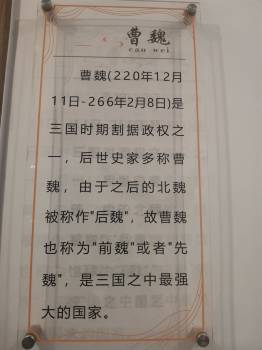 曹魏
cao wei
曹魏(220年12月
11日-266年2月8日)是
三国时期割据政权之
一，后世史家多称曹
魏，由于之后的北魏
被称作"后魏"，故曹魏
也称为"前魏"或者"先
魏"，是三国之中最强
大的国家。